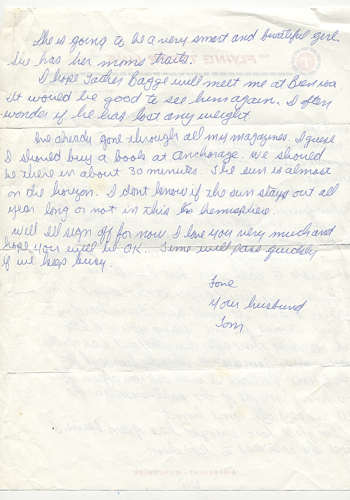 She is going to be a very smart and beautiful girl.
She has her moms traits.
I hope Father Bagge will meet me at Bien Hoa
It would be good to see him again. I often
wonder if he has lost any weight.
I've already gone through all my magazines. I guess
I should buy a book at anchorage. We should
be there in about 30 minutes. The sun is almost
on the horizon. I dont know if the sun stays out all
year long or not in this hemisphere.
Well I'll sign off for now. I love you very much and
hope you will be OK. Time will pass quickly
if we keep busy.
Love
your husband
Tom